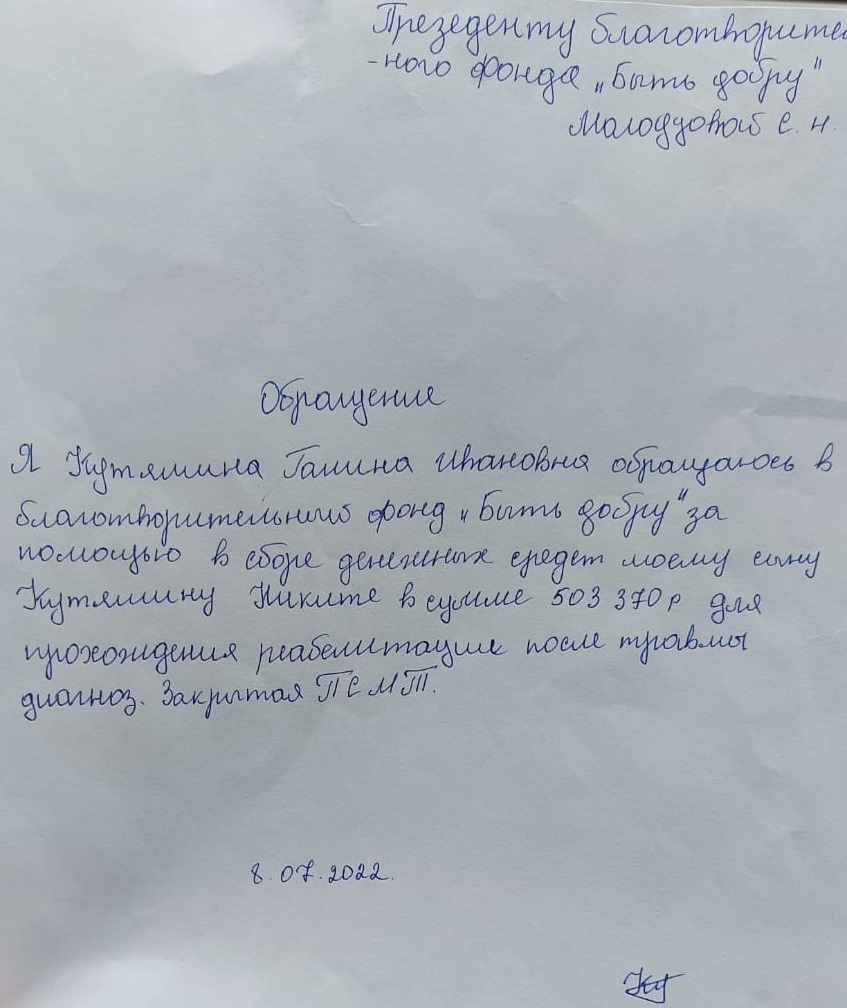 Презеденту благотворите
-ного фонда „Быть добру"
Малоддовой С. Н.
Обращение
Я Кутямина Галина Ивановна обращаюсь в
благотворительный фонд „Быть добру" за
помощью в сборе денежных средст моему сыну
Кутямину Никите в сумме 503 370 р для
прохождения реабелитацие после травмы
диагноз. Закрытая ПСМТ.
8.07.2022.